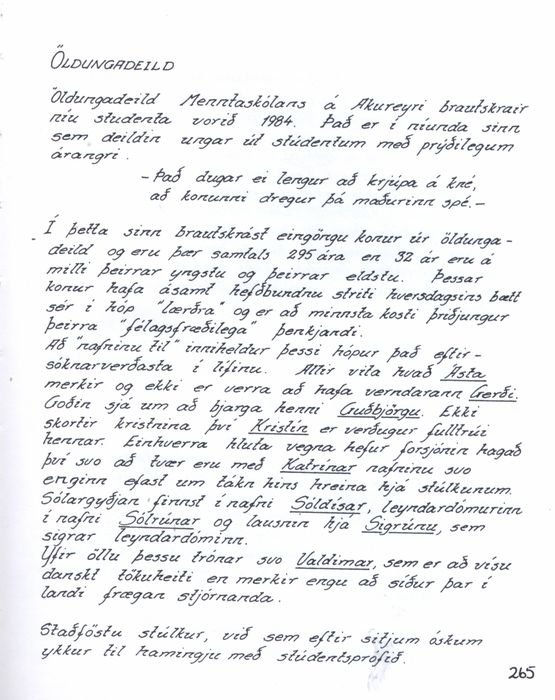 ÖLDUNGADEILD
Öldungadeild Menntaskólans á Akureyri brautskrair
níu studenta vorið 1984. Það er í níunda sinn
sem deildin ungar út stúdentum með prýðilegum
árangri.
- Það dugar ei lengur að krjúpa á kné,
að konunni dregur þá maðurinn spé. -
Í þetta sinn brautskrást eingöngu konur úr öldunga-
deild og eru þær samtals 295 ára en 32 ár eru á
milli þeirrar yngstu og þeirrar eldstu. Þessar
konur hafa ásamt hefðbundnu striti hversdagsins bætt
sér í hóp "lærðra" og er að minnsta kosti þriðjungur
þeirra "félagsfræðilega" þenkjandi.
Að "nafninu til" inniheldur þessi hópur það eftir-
sóknarverðasta í lífinu. Allir vita hvað Ásta
merkir og ekki er verra að hafa verndarann Gerði.
Goðin sjá um að bjarga henni Guðbjörgu. Ekki
skortir kristnina því Kristín er verðugur fulltrúi
hennar. Einhverra hluta vegna hefur forsjónin hagað
því svo að tvær eru með Katrínar nafninu svo
enginn efast um tákn hins hreina hjá stúlkunum.
Sólargyðjan finnst í nafni Sóldísar, leyndardómurinn
í nafni Sólrúnar og lausnin hjá Sigrúnu, sem
sigrar leyndardóminn.
Yfir öllu þessu trónar svo Valdimar, sem er að vísu
danskt tökuheiti en merkir engu að síður þar í
landi frægan stjórnanda.
Staðföstu stúlkur, við sem eftir sitjum óskum
ykkur til hamingju með stúdentsprófið.
265